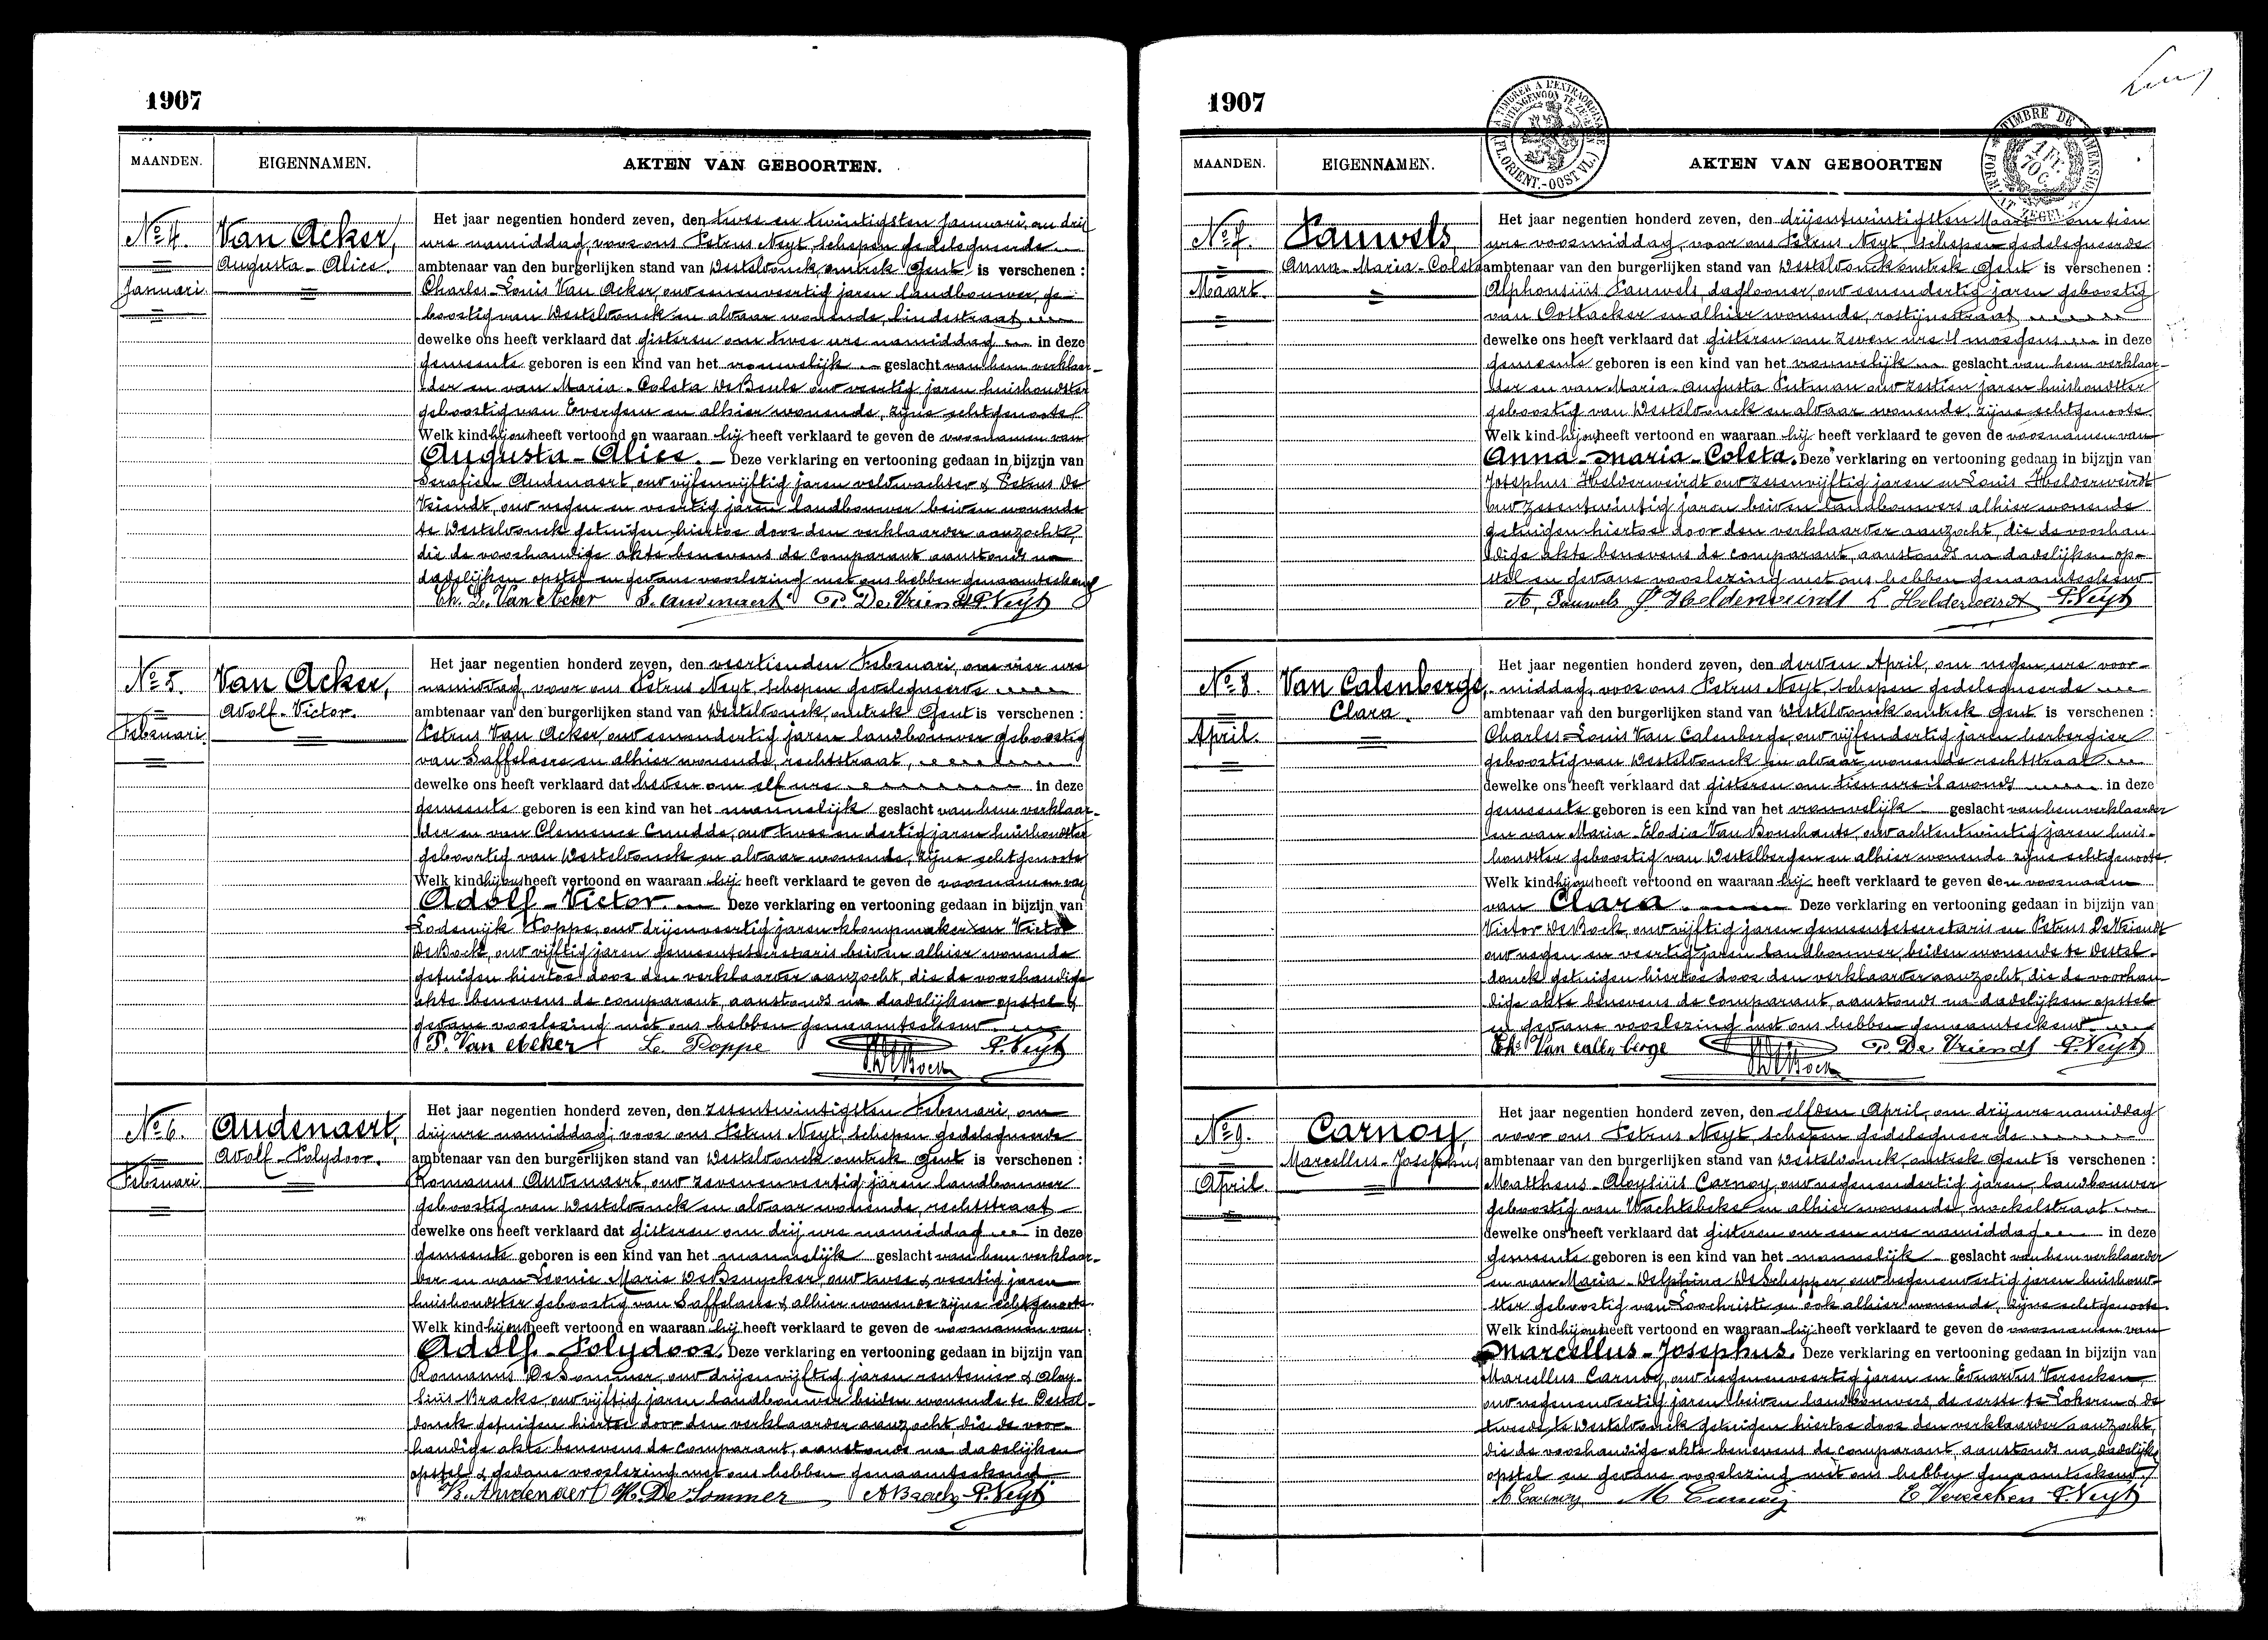 1907
MAANDEN. EIGENNAMEN. AKTEN VAN GEBOORTEN.
No 4. Van Acker,
Augusta-Alice.
Januari
Het jaar negentien honderd zeven, den twee en twintigsten Januari, om drij
ure namiddag, voor ons Petrus Neyt, schepen gedelegueerde
ambtenaar van den burgerlijken stand van Desteldonck, omtrek Gent is verschenen :
Charles-Louis Van Acker, oud eenenveertig jaren landbouwer, ge-
boortig van Desteldonck en aldaar wonende, lindestraat
dewelke ons heeft verklaard dat gisteren om twee ure namiddag in deze
gemeente geboren is een kind van het vrouwelijk geslacht van hem verklaar-
der en van Maria-Coleta De Beule oud veertig jaren huishoudster
geboortig van Evergem en alhier wonende, zijne echtgenoote
Welk kind hij ons heeft vertoond en waaraan hij heeft verklaard te geven de voornamen van
Augusta-Alice. Deze verklaring en vertooning gedaan in bijzijn van
Serafien Audenaert, oud vijfenvijftig jaren veldwachter & Petrus De
Vriendt, oud negen en veertig jaren landbouwer beiden wonende
te Desteldonck getuigen hiertoe door den verklaarder aanzocht,
die de voorhandige akte benevens de comparant aanstonds na
dadelijken opstel en gedane voorlezing met ons hebben genaamteekend
Ch. L. Van Acker S. Audenaert P. De Vriendt P. Neyt
No 5. Van Acker,
Adolf-Victor.
Februari
Het jaar negentien honderd zeven, den veertienden Februari, om vier ure
namiddag, voor ons Petrus Neyt, schepen gedelegueerde
ambtenaar van den burgerlijken stand van Desteldonck, omtrek Gent is verschenen :
Petrus Van Acker, oud eenendertig jaren landbouwer geboortig
van Saffelaere en alhier wonende, rechtstraat,
dewelke ons heeft verklaard dat heden om elf ure in deze
gemeente geboren is een kind van het mannelijk geslacht van hem verklaar-
der en van Clemence Cnudde, oud twee en dertig jaren huishoudster
geboortig van Desteldonck en aldaar wonende, zijne echtgenoote
Welk kind hij ons heeft vertoond en waaraan hij heeft verklaard te geven de voornamen van
Adolf-Victor. Deze verklaring en vertooning gedaan in bijzijn van
Lodewijk Poppe, oud drijenveertig jaren klompmaker en Victor
De Bock, oud vijftig jaren gemeentesecretaris beiden alhier wonende
getuigen hiertoe door den verklaarder aanzocht, die de voorhandige
akte benevens de comparant, aanstonds na dadelijken opstel &
gedane voorlezing met ons hebben genaamteekend.
P. Van Acker L. Poppe V. De Bock P. Neyt
No 6. Audenaert,
Adolf-Polydoor.
Februari
Het jaar negentien honderd zeven, den zesentwintigsten Februari, om
drij ure namiddag, voor ons Petrus Neyt, schepen gedelegueerde
ambtenaar van den burgerlijken stand van Desteldonck, omtrek Gent is verschenen :
Romanus Audenaert, oud zevenenveertig jaren landbouwer
geboortig van Desteldonck en aldaar wonende, rechtstraat
dewelke ons heeft verklaard dat gisteren om drij ure namiddag in deze
gemeente geboren is een kind van het mannelijk geslacht van hem verklaar-
der en van Leonie Marie De Bruycker, oud twee & veertig jaren
huishoudster geboortig van Saffelaere & alhier wonende zijne echtgenoote.
Welk kind hij ons heeft vertoond en waaraan hij heeft verklaard te geven de voornamen van
Adolf-Polydoor. Deze verklaring en vertooning gedaan in bijzijn van
Romanus De Sommer, oud drijenvijftig jaren rentenier & Aloy-
sius Bracke, oud vijftig jaren landbouwer beiden wonende te Destel-
donck getuigen hiertoe door den verklaarder aanzocht, die de voor-
handige akte benevens de comparant, aanstonds na dadelijken
opstel & gedane voorlezing met ons hebben genaamteekend
R. Audenaert R. De Sommer A Bracke P. Neyt
1907
MAANDEN. EIGENNAMEN. AKTEN VAN GEBOORTEN
No 7. Pauwels
Anna-Maria-Coleta
Maart.
Het jaar negentien honderd zeven, den drijentwintigsten Maart om tien
ure voormiddag, voor ons Petrus Neyt, schepen gedelegueerde
ambtenaar van den burgerlijken stand van Desteldonck omtrek Gent is verschenen :
Alphonsius Pauwels, daglooner, oud eenendertig jaren geboortig
van Oostacker en alhier wonende, rostijnestraat
dewelke ons heeft verklaard dat gisteren om zeven ure 's morgens in deze
gemeente geboren is een kind van het vrouwelijk geslacht van hem verklaar-
der en van Maria-Augusta Putman oud zestien jaren huishoudster
geboortig van Desteldonck en aldaar wonende, zijne echtgenoote.
Welk kind hij ons heeft vertoond en waaraan hij heeft verklaard te geven de voornamen van
Anna-Maria-Coleta. Deze verklaring en vertooning gedaan in bijzijn van
Josephus Helderweirdt oud zesenvijftig jaren en Louis Helderweirdt
oud zesentwintig jaren beiden landbouwers alhier wonende
getuigen hiertoe door den verklaarder aanzocht, die de voorhan-
dige akte benevens de comparant, aanstonds na dadelijken op-
stel en gedane voorlezing met ons hebben genaamteekend
A. Pauwels J. Helderweirdt L. Helderweirdt P. Neyt
No 8. Van Calenberge,
Clara.
April.
Het jaar negentien honderd zeven, den derden April, om negen ure voor-
middag, voor ons Petrus Neyt, schepen gedelegueerde
ambtenaar van den burgerlijken stand van Desteldonck omtrek Gent is verschenen :
Charles-Louis Van Calenberge, oud vijfendertig jaren herbergier
geboortig van Desteldonck en aldaar wonende rechtstraat
dewelke ons heeft verklaard dat gisteren om tien ure 's avonds in deze
gemeente geboren is een kind van het vrouwelijk geslacht van hem verklaarder
en van Maria-Elodia Van Bouchaute, oud achtentwintig jaren huis-
houdster geboortig van Destelbergen en alhier wonende zijne echtgenoote.
Welk kind hij ons heeft vertoond en waaraan hij heeft verklaard te geven den voornaam
van Clara. Deze verklaring en vertooning gedaan in bijzijn van
Victor De Bock, oud vijftig jaren gemeentesecretaris en Petrus De Vriendt
oud negen en veertig jaren landbouwer, beiden wonende te Destel-
donck getuigen hiertoe door den verklaarder aanzocht, die de voorhan-
dige akte benevens de comparant, aanstonds na dadelijken opstel
en gedane voorlezing met ons hebben genaamteekend.
Ch. Van calenberge V. De Bock P. De Vriendt P. Neyt
No 9. Carnoy,
Marcellus-Josephus
April.
Het jaar negentien honderd zeven, den elfden April, om drij ure namiddag
voor ons Petrus Neyt, schepen gedelegueerde
ambtenaar van den burgerlijken stand van Desteldonck, omtrek Gent is verschenen :
Mattheus-Aloysius Carnoy, oud negenendertig jaren, landbouwer
geboortig van Wachtebeke en alhier wonende, nockelstraat
dewelke ons heeft verklaard dat gisteren om een ure namiddag in deze
gemeente geboren is een kind van het mannelijk geslacht van hem verklaarder
en van Maria-Delphina De Schepper, oud negenenveertig jaren huishoud-
ster geboortig van Loochristi en ook alhier wonende, zijne echtgenoote.
Welk kind hij ons heeft vertoond en waaraan hij heeft verklaard te geven de voornamen van
Marcellus-Josephus. Deze verklaring en vertooning gedaan in bijzijn van
Marcellus Carnoy, oud negenenveertig jaren en Eduardus Vereecken
oud negenenveertig jaren beiden landbouwers, de eerste te Lokeren & de
tweede te Desteldonck getuigen hiertoe door den verklaarder aanzocht,
die de voorhandige akte benevens de comparant, aanstonds na dadelijk
opstel en gedane voorlezing met ons hebben genaamteekend
A Carnoy M Carnoy E Vereecken P. Neyt